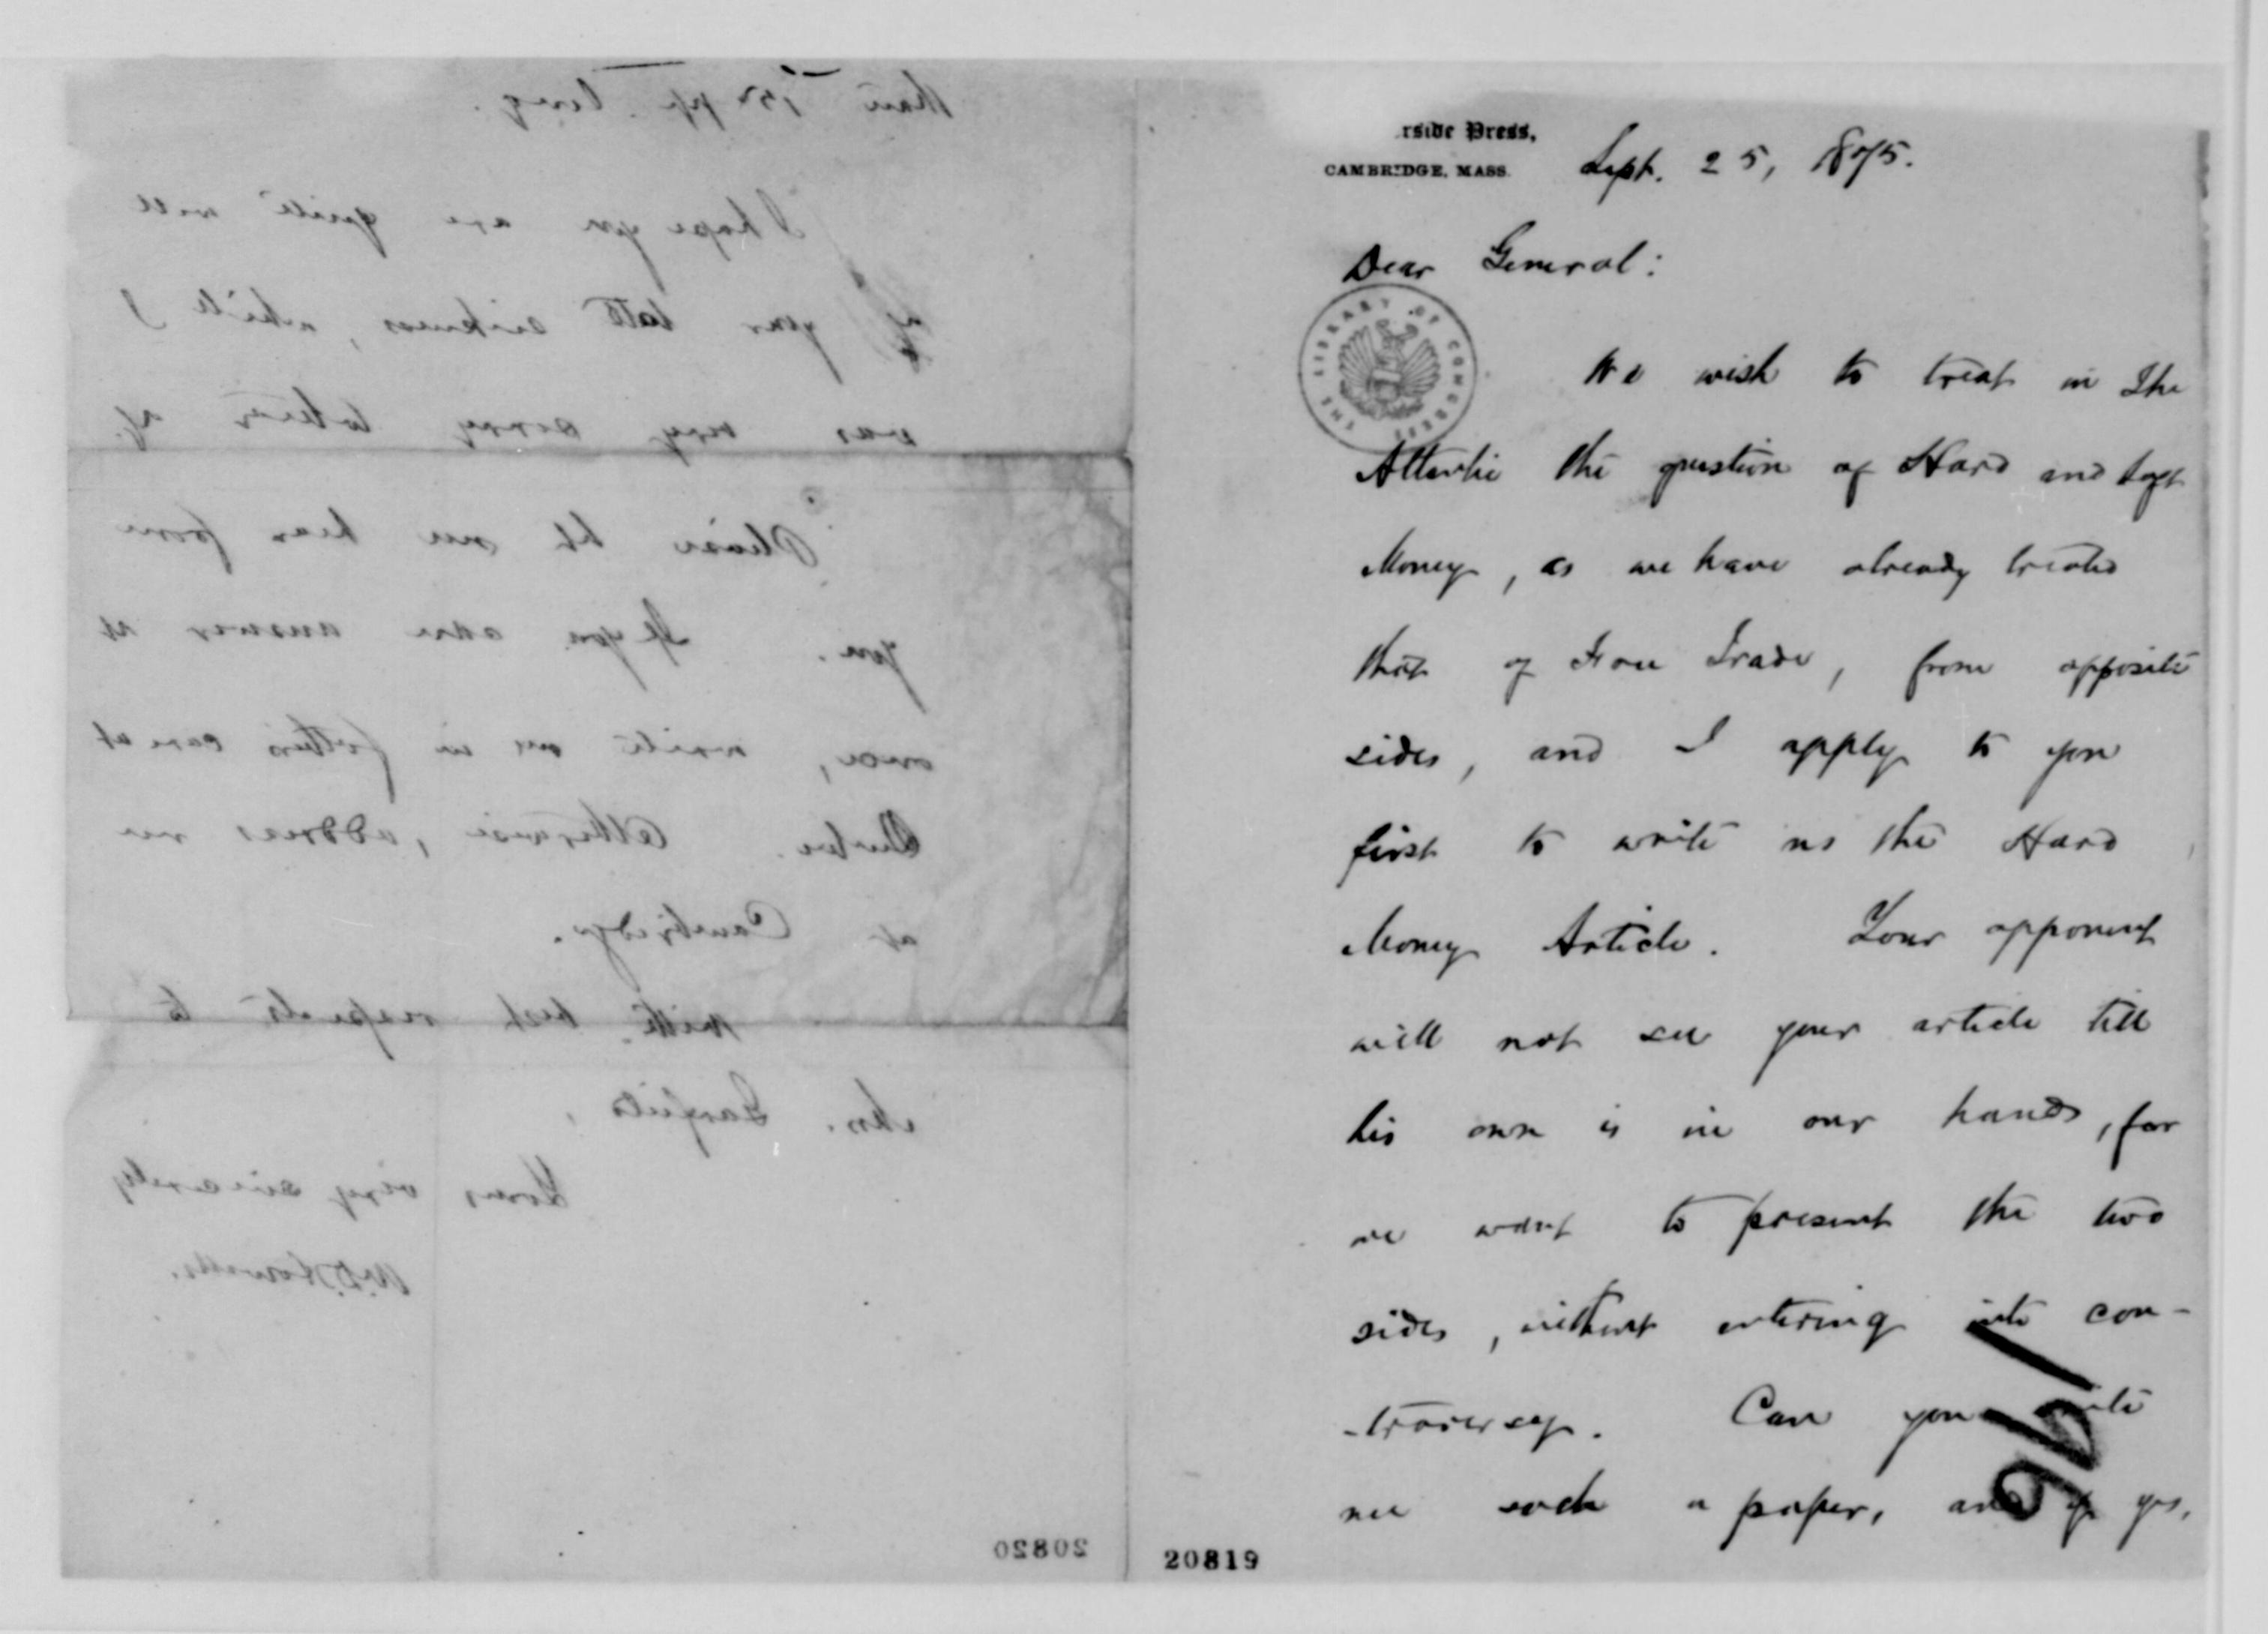 rside Press,
CAMBRIDGE, MASS.
Sept. 25, 1875.
Dear General:
THE LIBRARY OF CONGRESS
We wish to treat in The
Atlantic the question of Hard and Soft
Money, as we have already treated
that of Free Trade, from opposite
sides, and I apply to you
first to write us the Hard
Money Article. Your opponent
will not see your article till
his own is in our hands, for
we want to present the two
sides, without entering into con-
-troversy. Can you write
me such a paper, and if yes,
20819
than pp. long.
I hope you are quite well
of your late sickness, which I
was very sorry to hear of.
Please let me hear from
you. If you can answer at
once, write me in father's care at
Quebec. Otherwise, address me
at Cambridge.
With best respects to
Mrs. Garfield,
Yours very sincerely
W.D. Howells.
20820